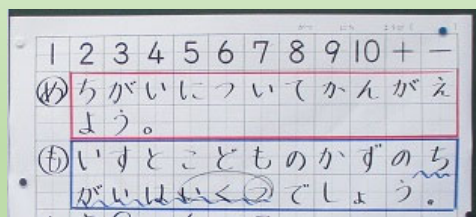 1 2 3 4 5 6 7 8 9 10 + −
め ちがいについてかんがえ
よう。
も いすとこどものかずのち
がいはいくつでしょう。